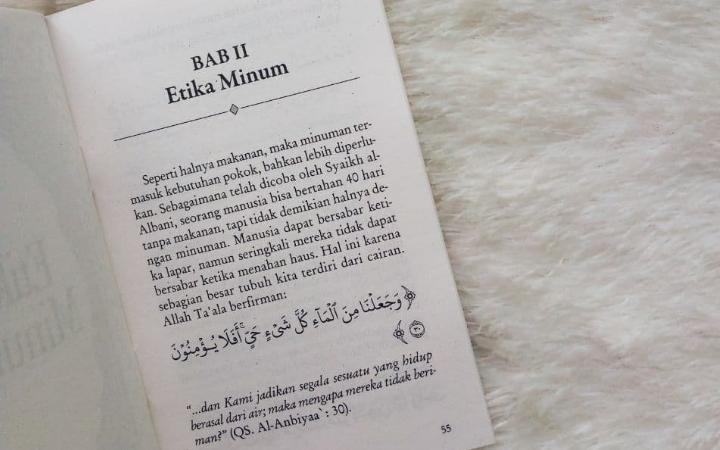 BAB II
Etika Minum
Seperti halnya makanan, maka minuman ter-
masuk kebutuhan pokok, bahkan lebih diperlu-
kan. Sebagaimana telah dicoba oleh Syaikh al-
Albani, seorang manusia bisa bertahan 40 hari
tanpa makanan, tapi tidak demikian halnya de-
ngan minuman. Manusia dapat bersabar keti-
ka lapar, namun seringkali mereka tidak dapat
bersabar ketika menahan haus. Hal ini karena
sebagian besar tubuh kita terdiri dari cairan.
Allah Ta'ala berfirman:
﴿ وَجَعَلْنَا مِنَ ٱلْمَآءِ كُلَّ شَىْءٍ حَىٍّ ۚ أَفَلَا يُؤْمِنُونَ
٣٠ ﴾
"...dan Kami jadikan segala sesuatu yang hidup
berasal dari air; maka mengapa mereka tidak beri-
man?" (QS. Al-Anbiyaa`: 30).
55